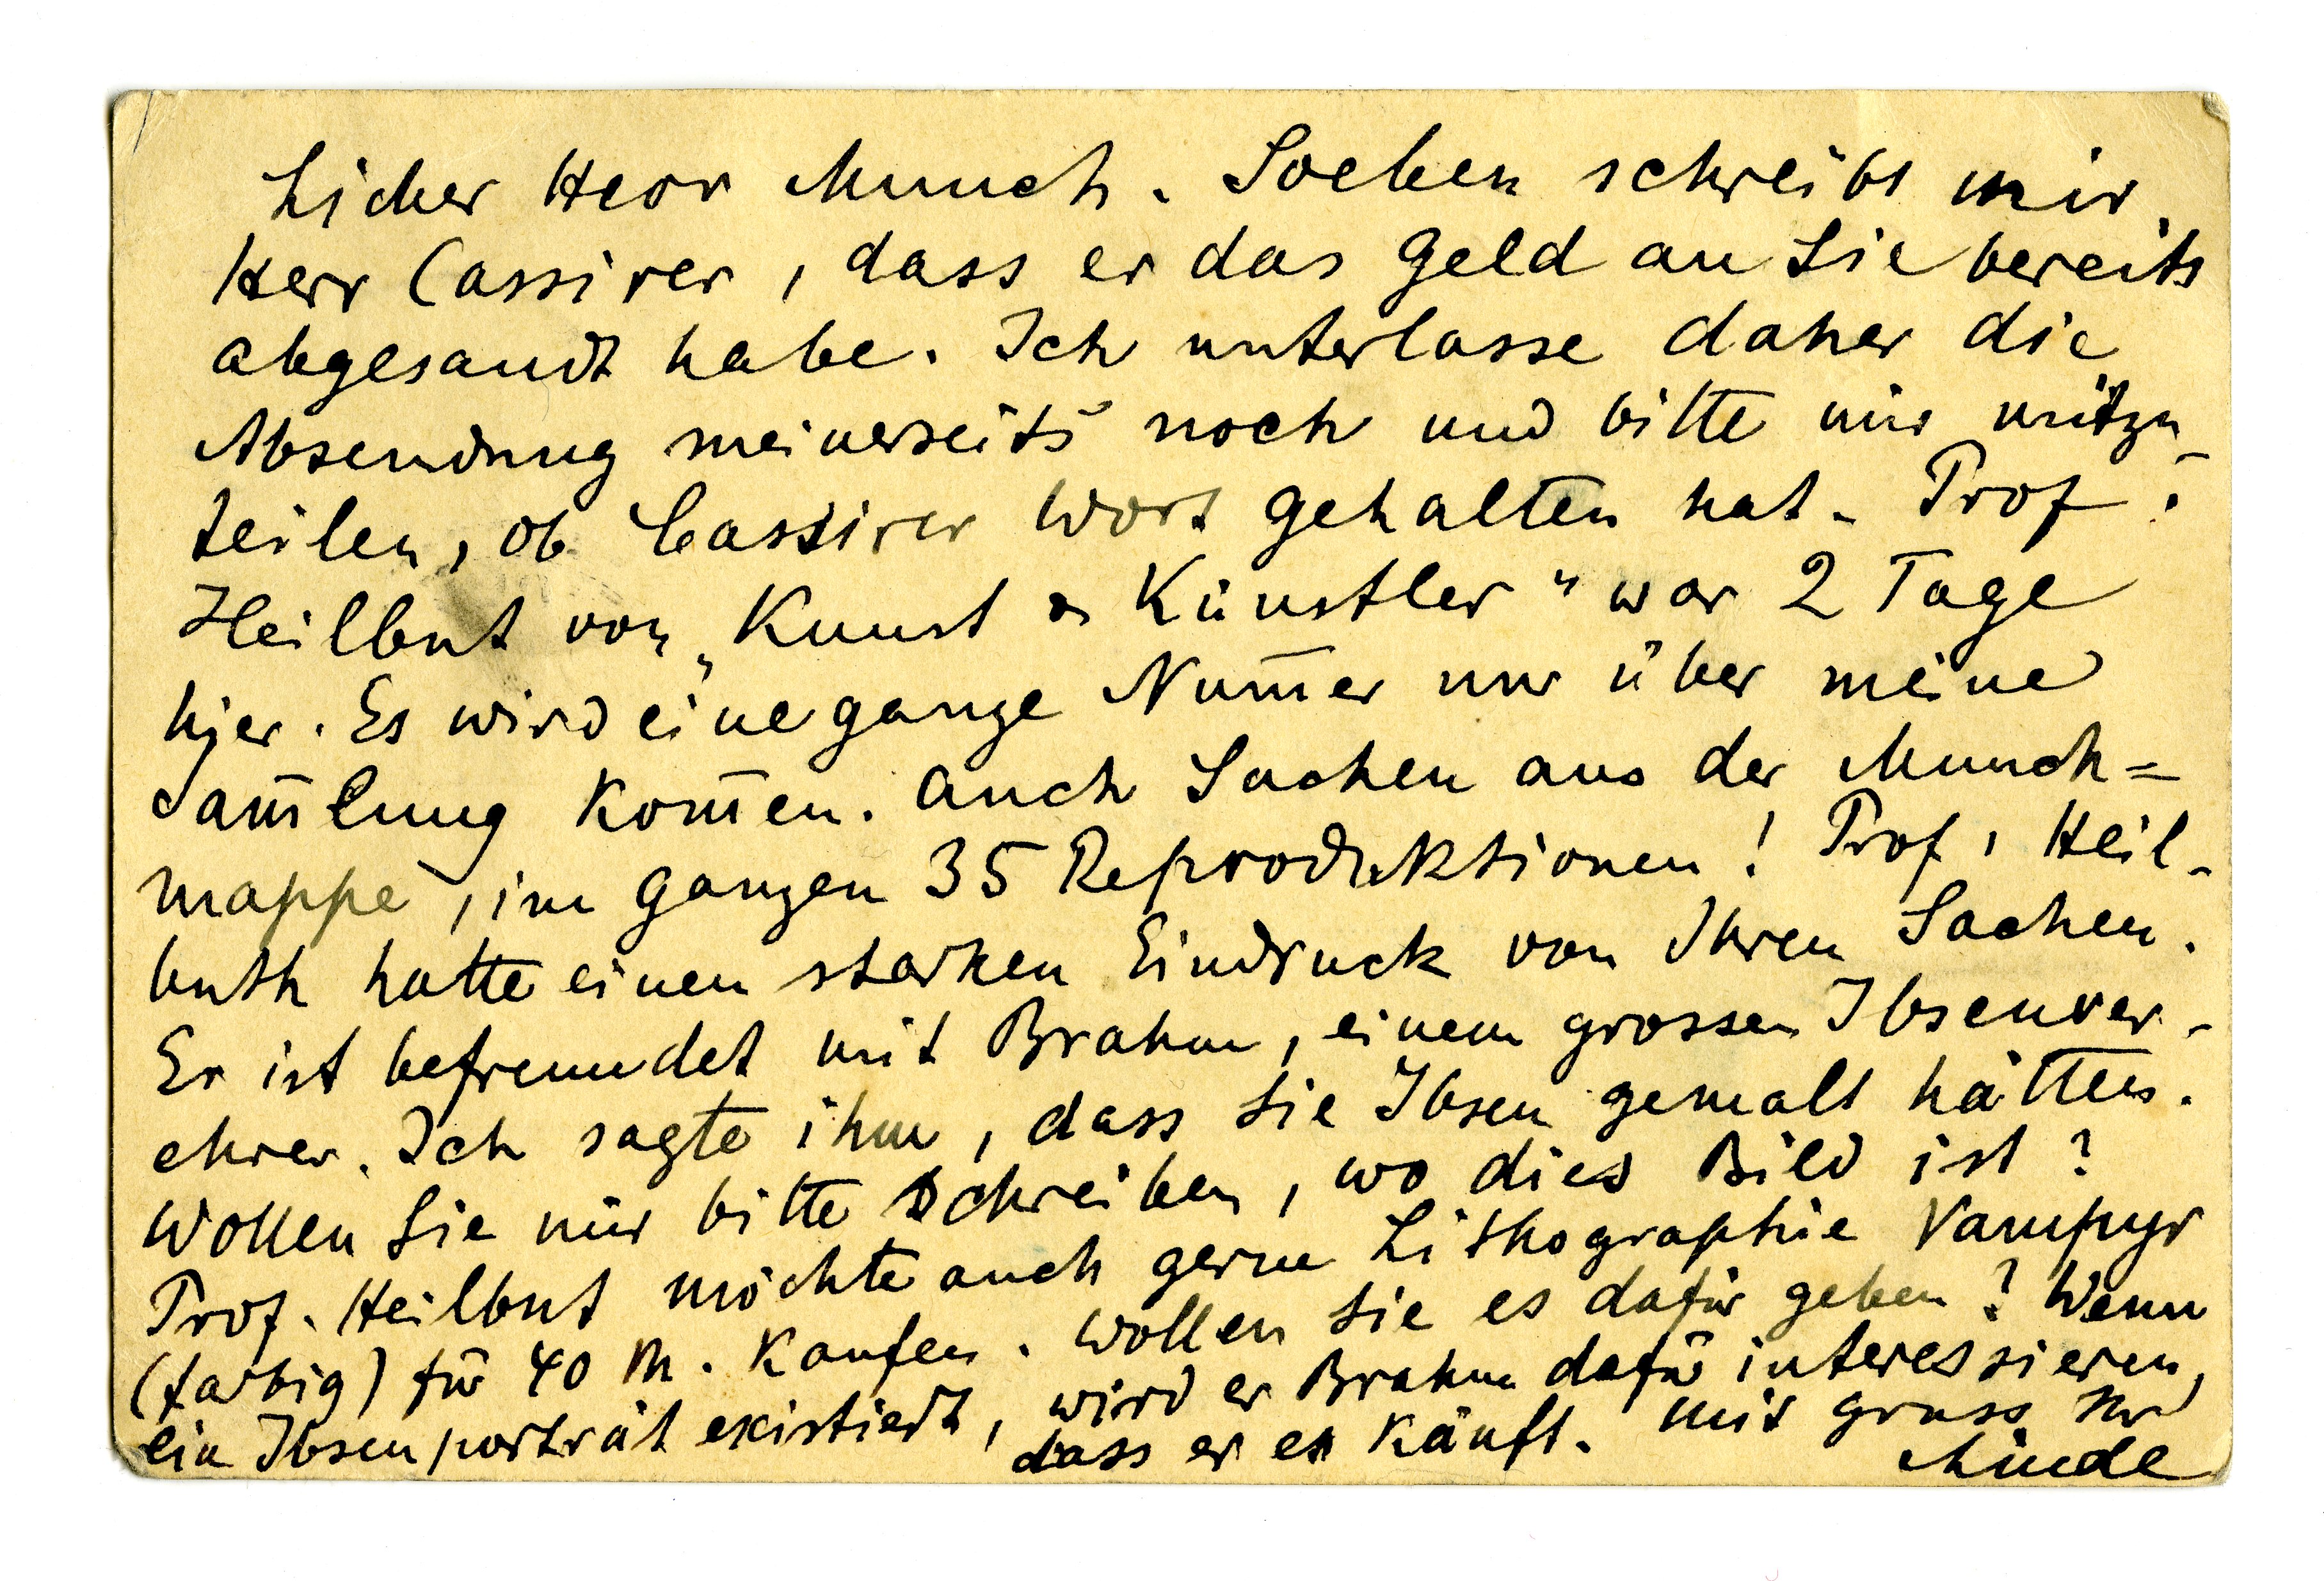 Lieber Herr Munch. Soeben schreibt mir
Herr Cassirer, dass er das Geld an Sie bereits
abgesandt habe. Ich unterlasse daher die
Absendung meinerseits noch und bitte mir mitzu
teilen, ob Cassirer Wort gehalten hat. Prof.
Heilbut von „Kunst & Künstler" war 2 Tage
hier. Es wird eine ganze Num̄er nur über meine
Sam̄lung kom̄en. Auch Sachen aus der Munch=
mappe, im Ganzen 35 Reproduktionen! Prof. Heil-
buth hatte einen starken Eindruck von Ihren Sachen.
Er ist befreundet mit Brahm, einem grossen Ibsenver-
ehrer. Ich sagte ihm, dass Sie Ibsen gemalt hätten.
Wollen Sie mir bitte schreiben, wo dies Bild ist?
Prof. Heilbut möchte auch gerne Lithographie Vampyr
(farbig) für 40 M. kaufen. Wollen Sie es dafür geben? Wenn
ein Ibsenporträt existiert, wird er Brahm dafür interessieren,
dass er es käuft. Mit Gruss Ihr
Linde